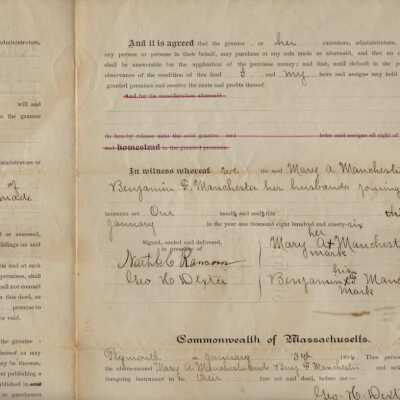 administrators,
And it is agreed that the grantee or her executors, administrators,
any person or persons in their behalf, may purchase at any sale made as aforesaid, and that no
shall be answerable for the application of the purchase money; and that, until default in the
observance of the condition of this deed I and my heirs and assigns may hold
granted premises and receive the rents and profits thereof.
And for the consideration aforesaid
will and
the grantee
do hereby release unto the said grantee and heirs and assigns all right of
and homestead in the granted premises.
administrators or
In witness whereof we the said Mary A Manchester
of
Benjamin F. Manchester her husband joining
made
hereunto set Our hands and seals this
January in the year one thousand eight hundred and ninety-six
or assessed,
buildings on said
Signed, sealed and delivered,
in presence of
her
Mary A X Manchester
mark
and at such
premises, shall
shall not commit
this deed, or
promise to
be void.
Geo. H. Dexter
his
Benjamin F X Manchester
mark
Commonwealth of Massachusetts.
of the grantee
thereof as may
may be thereon,
Plymouth January 3d 1896 Then
the above-named Mary A. Manchester and Benj F Manchester and
foregoing instrument to be their free act and deed, before me—
published in said
or purchasers
Geo. H. Dexter